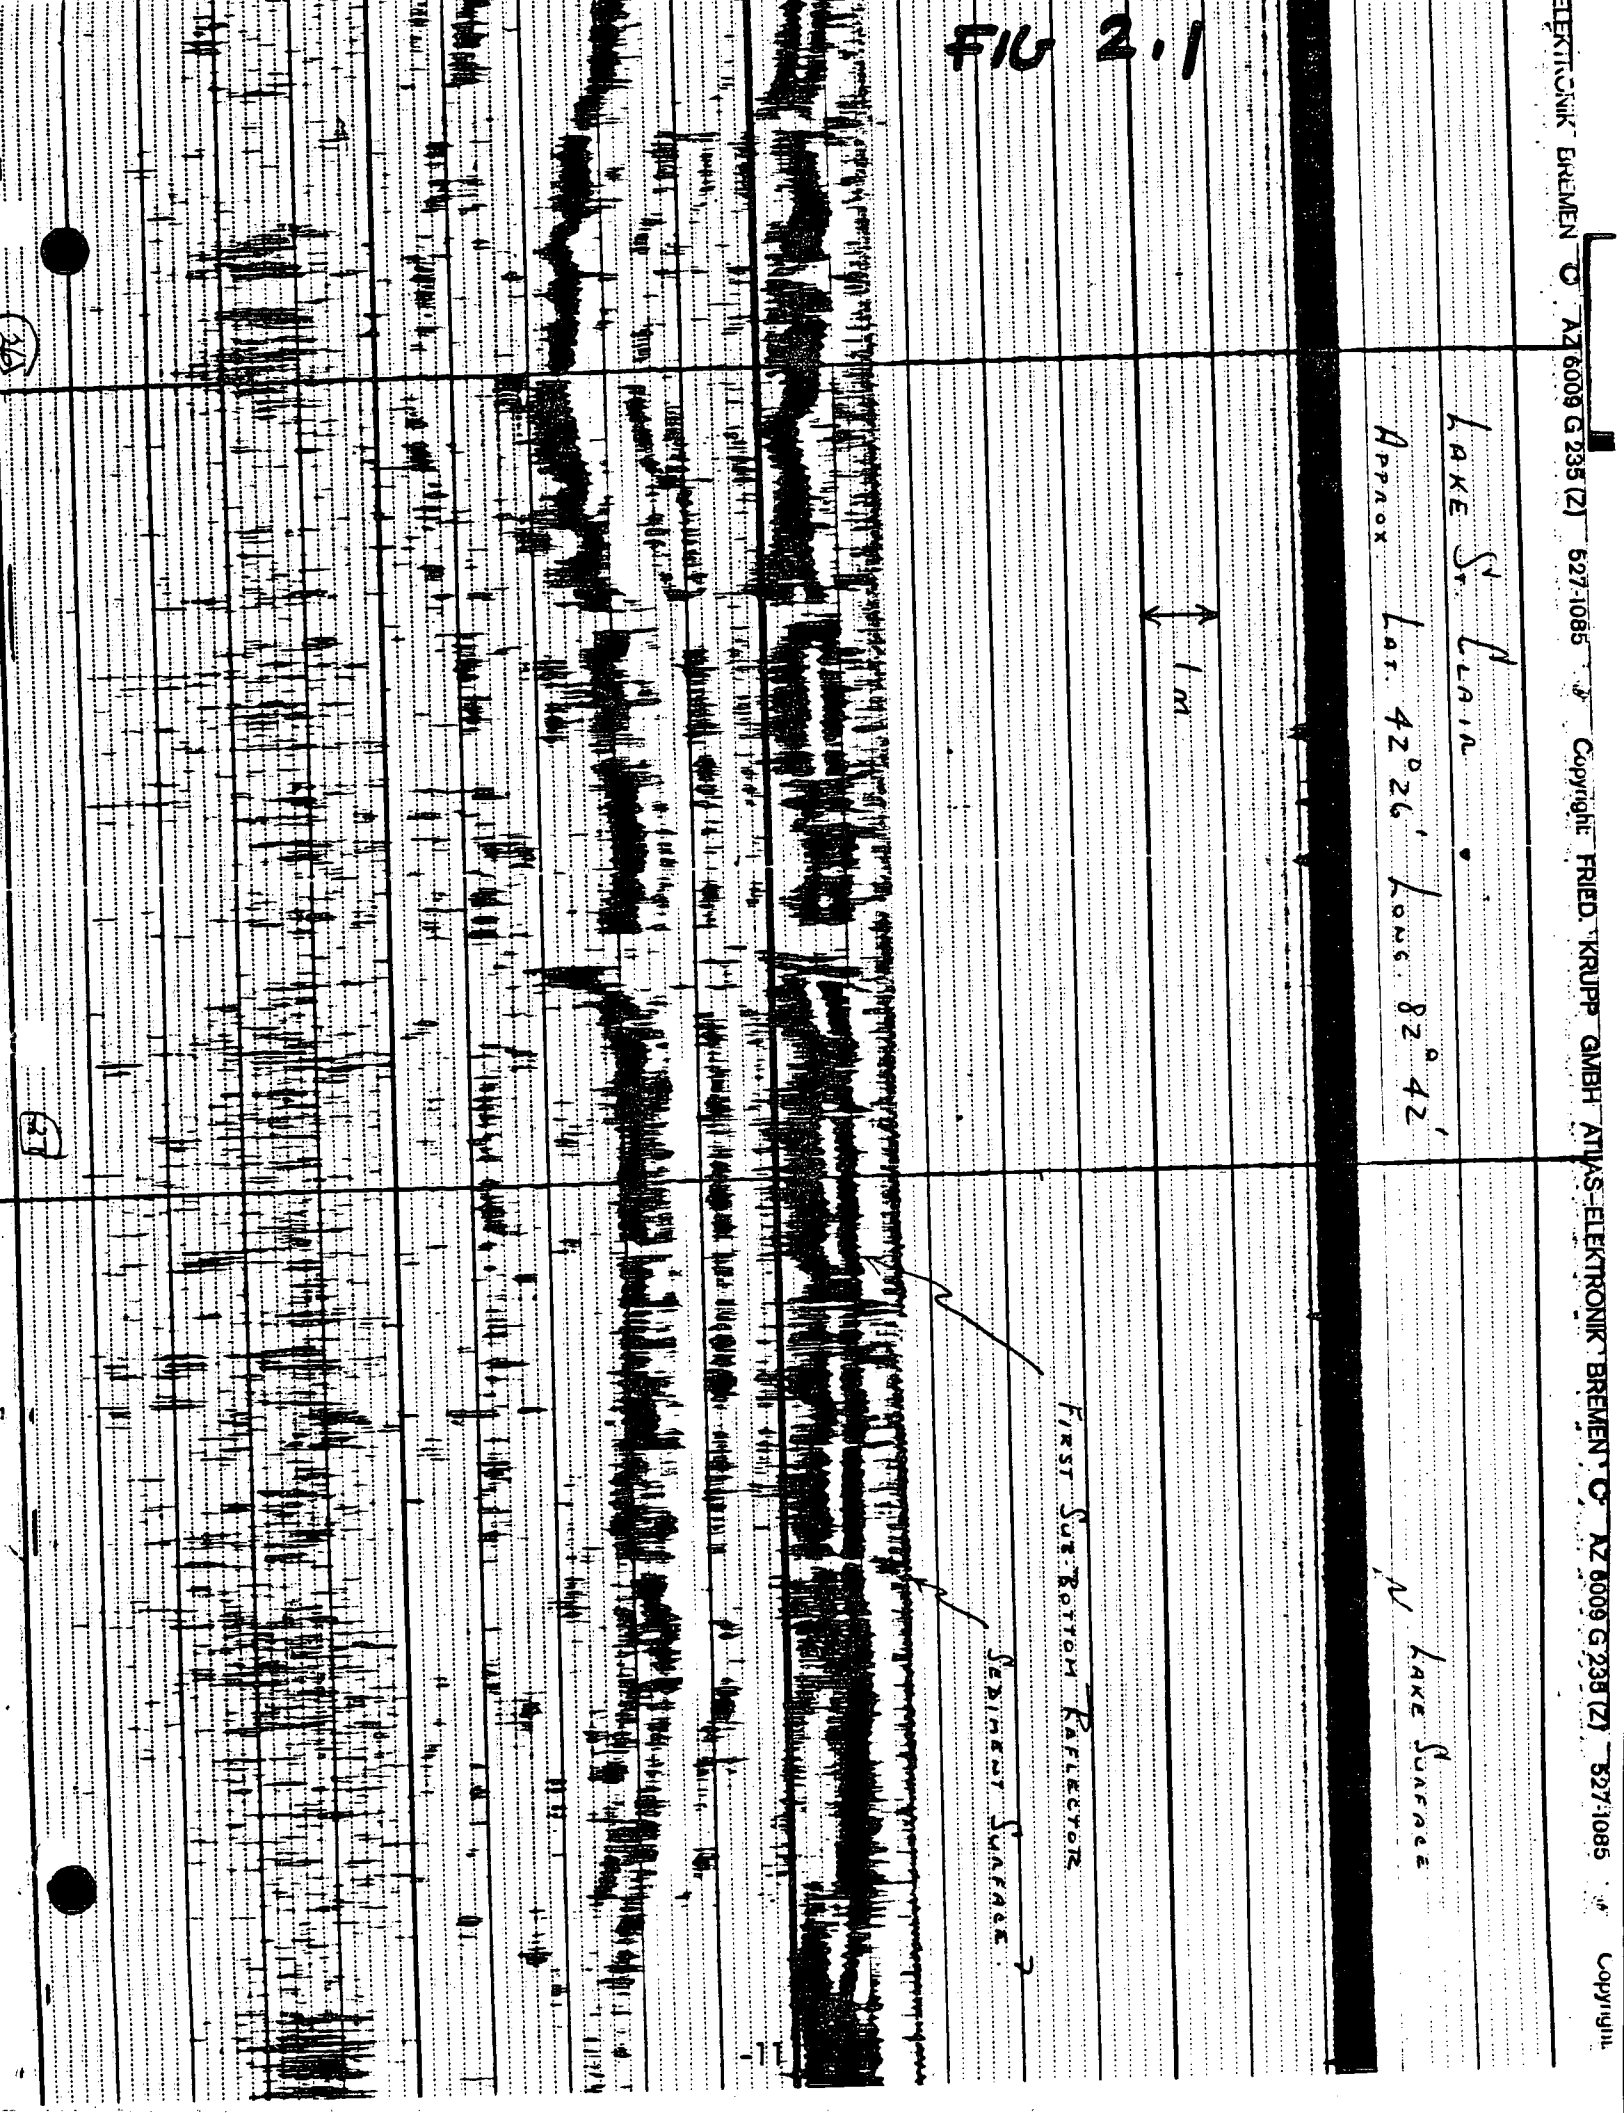 FIG 2.1
ELEKTRONIK BREMEN C AZ 6009 G 235 (Z) 527-1085 Copyright FRIED. KRUPP GMBH ATLAS-ELEKTRONIK BREMEN C AZ 6009 G 235 (Z) 527-1085 Copyright
LAKE ST. CLAIR
APPROX. LAT. 42° 26' LONG. 82° 42'
LAKE SURFACE
1 m
FIRST SUB BOTTOM REFLECTOR
SEDIMENT SURFACE
-11